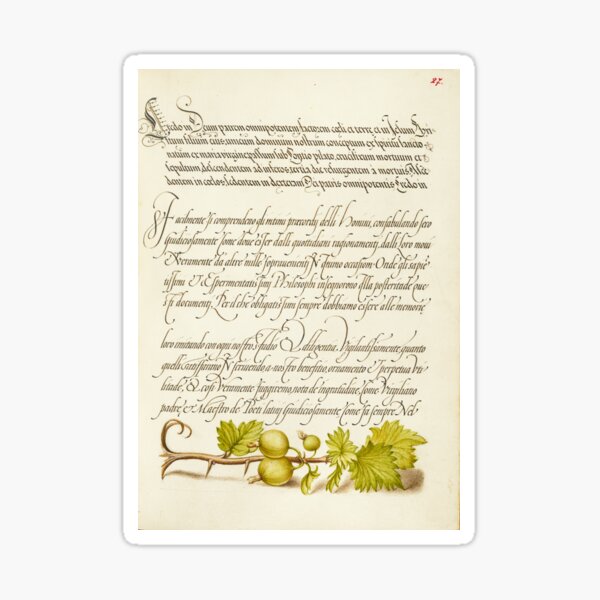 27.
Credo in Deum patrem omnipotentem factorem cœli et terre, et in Jesum Chri
stum filium eius unicum dominum nostrum conceptum ex spiritu sancto
natum ex maria virgine passum sub Pontio pilato crucifixum mortuum et
sepultum descendentem ad inferos tertia die resurgentem a mortuis, Ascen
dentem in cœlos sedentem in dexteram Dei patris omnipotentis Credo in
Facilmente si comprendeno gli intimi precordij delli Homini, confabulando sero
Giudiciosamente Come doue esser dalli quottidiani ragionamenti, dalli loro moui
Veramente da altre mille sopraeuenienti Quinno occasioni. Onde gli sapie
tissimi Et Esperimentatissimj Philosophi insegnorono alla posterità de que
documenti, Per il che obligatissimi sempre dobbiamo essere alle memorie
loro imitando con ogni nostro studio Et dilligentia, Vigilantissamente quanto
quelli instruendo a nostro benefitio, ornamento Et perpetua Vti
litade, Et cosi Veramente fuggiremo, nota de ingratitudine Come Virgiliano
padre, Et Maestro de Poeti latinj Giudiciosamente Come fa sempre Nel